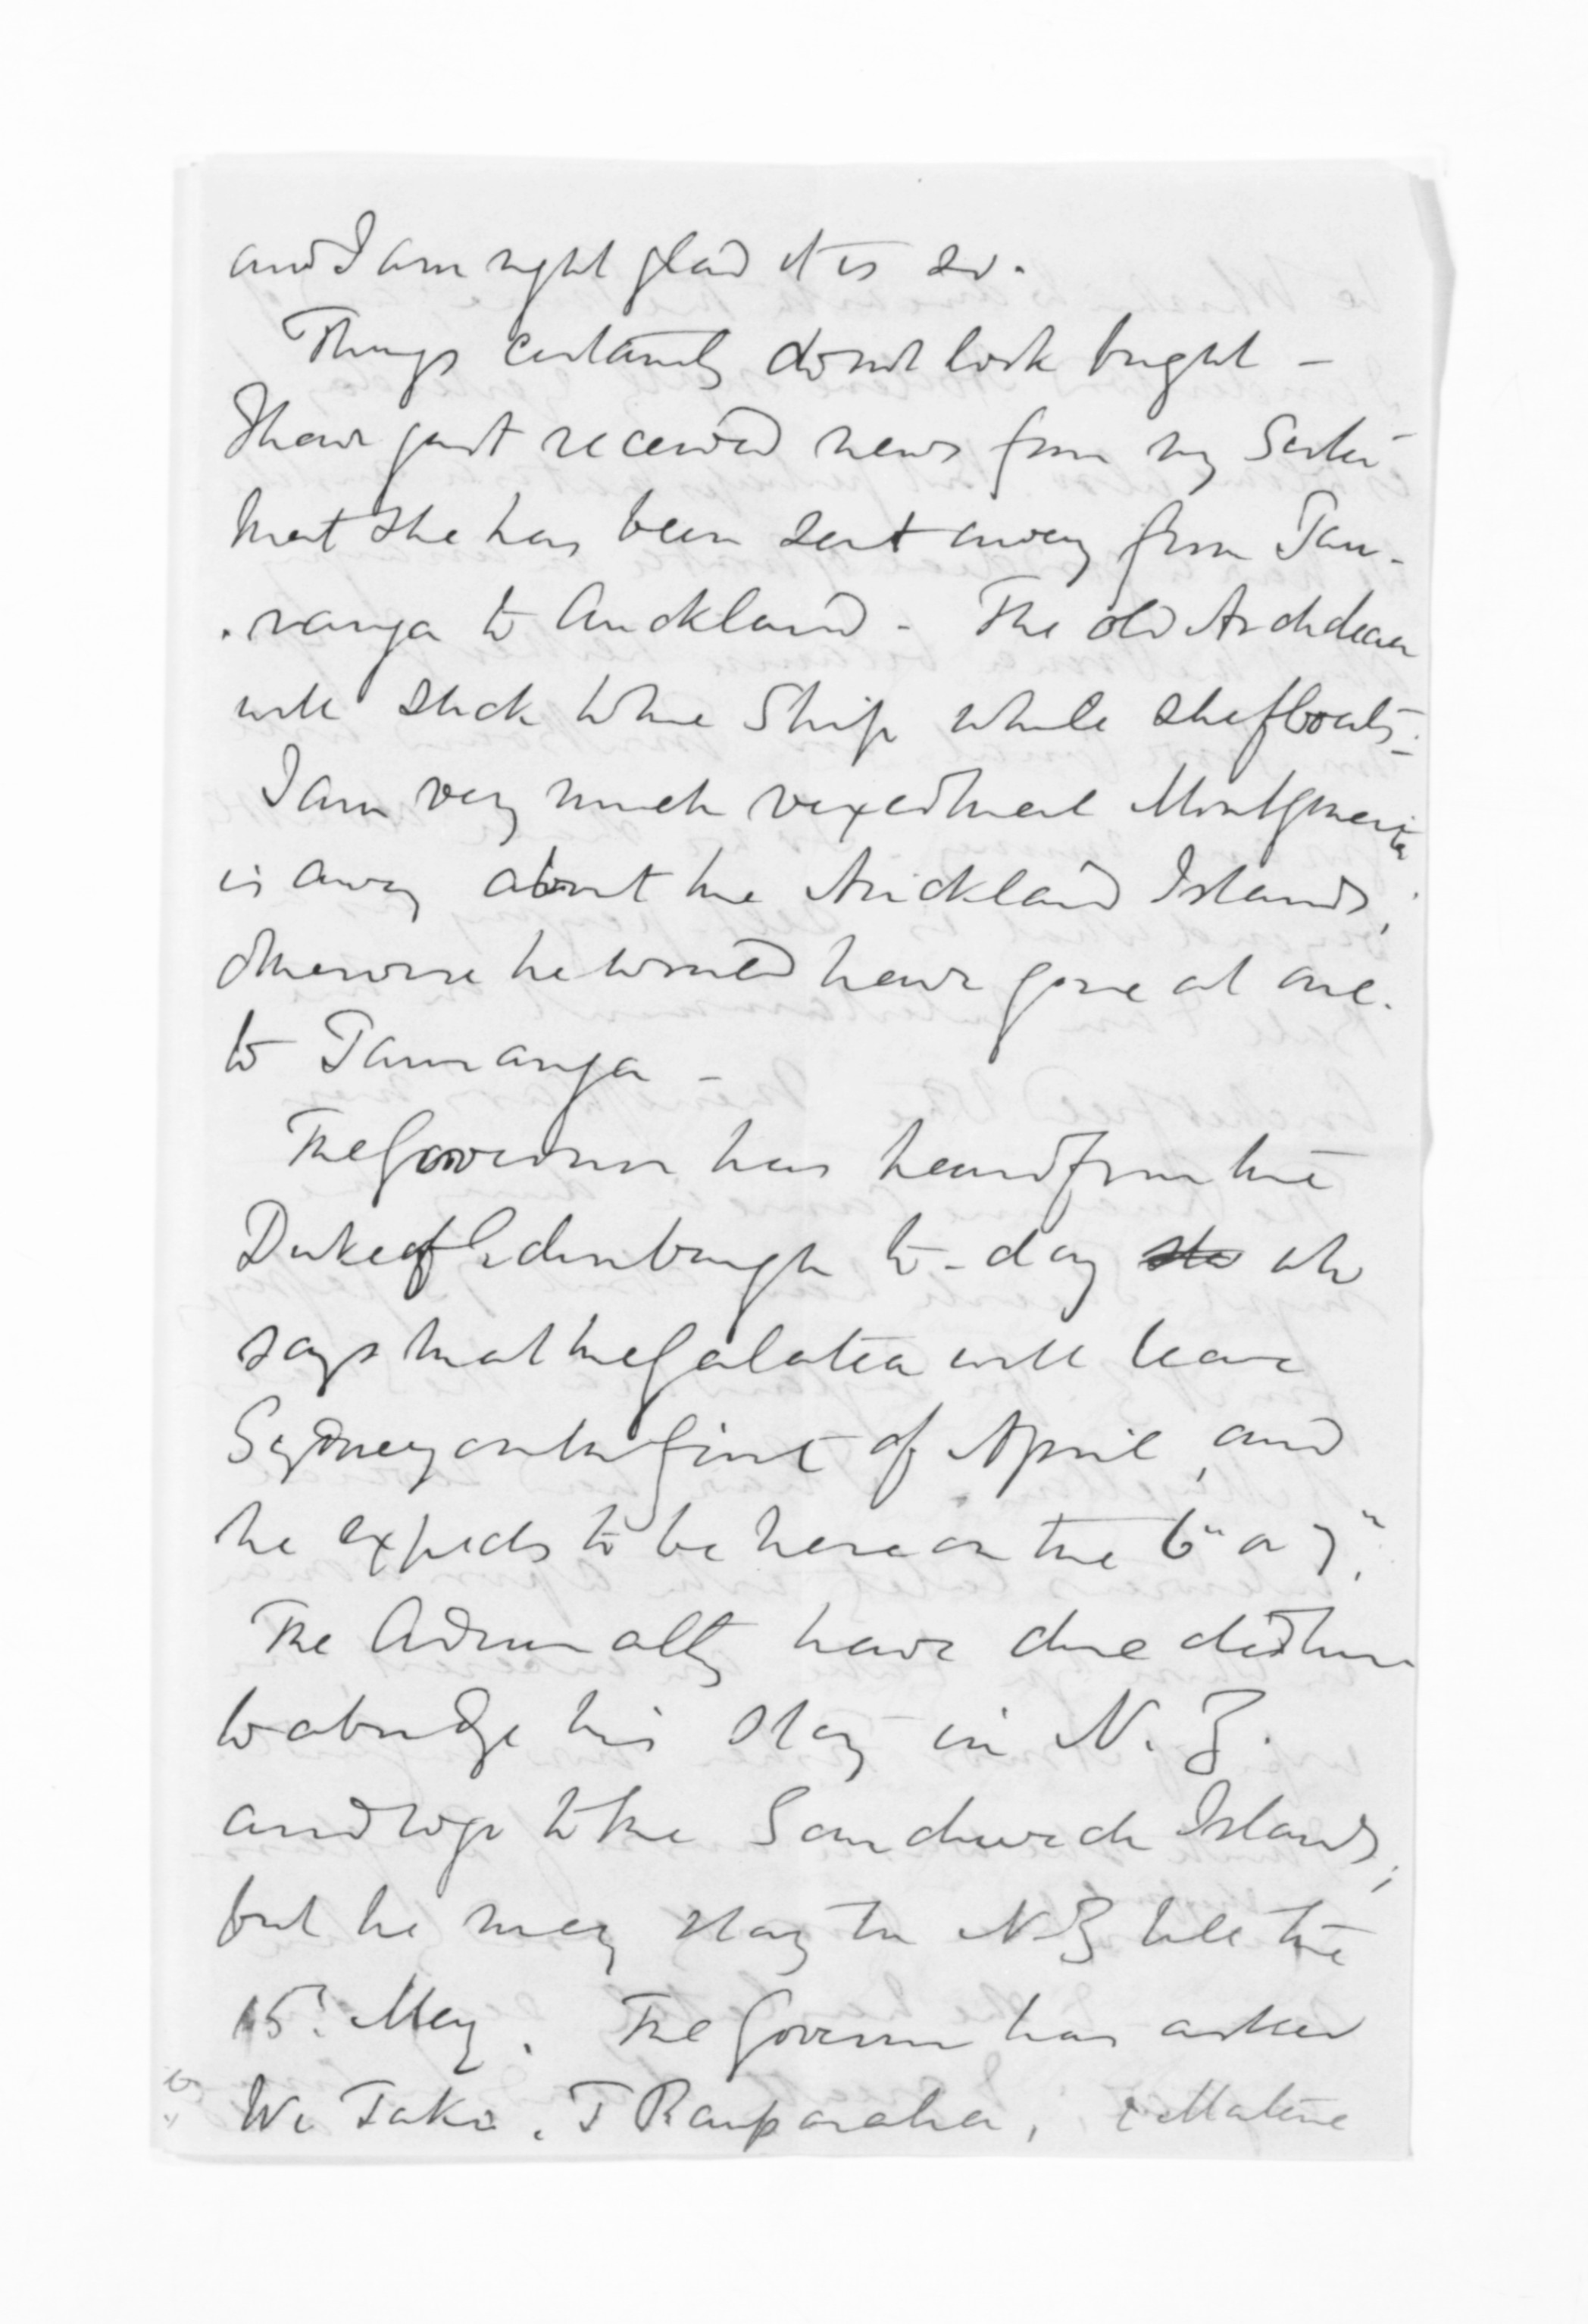 and I am right glad it is so.
Things certainly do not look bright –
I have just received news from my Sister
that she has been sent away from Tau-
-ranga to Auckland - The old Archdeacon
will stick to the Ship while she floats -
I am very much vexed that Montgomerie
is away about the Auckland Islands,
otherwise he would have gone at once
to Tauranga -
The Governor has heard from the
Duke of Edinburgh to-day who
says that the Galatea will leave
Sydney on the first of April, and
he expects to be here on the 6" or 7".
The Admiralty have directed him
to abridge his stay in N. Z.
and to go to the Sandwich Islands;
but he may stay in NZ till the
15. May. The Governor has asked
Wi Tako, T Rauparaha, & Matene